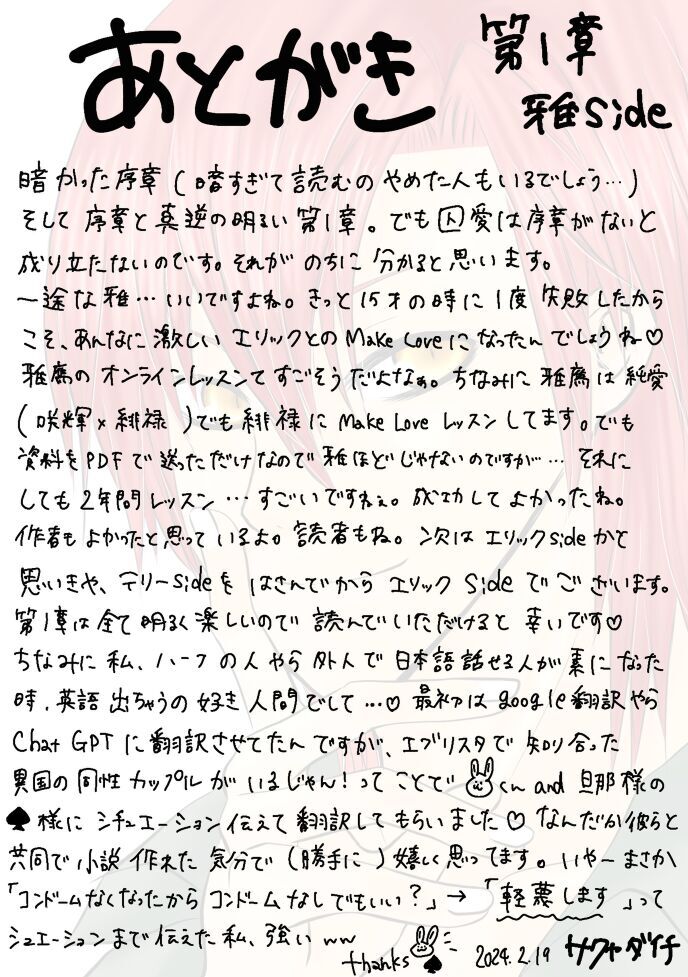 あとがき 第1章
雅side
暗かった序章(暗すぎて読むのやめた人もいるでしょう…)
そして序章と真逆の明るい第1章。でも囚愛は序章がないと
成り立たないのです。それがのちに分かると思います。
一途な雅…いいですよね。きっと15才の時に1度失敗したから
こそ、あんなに激しいエリックとのMake Loveになったんでしょうね♡
雅鷹のオンラインレッスンてすごそうだよなぁ。ちなみに雅鷹は純愛
(咲輝×緋禄)でも緋禄にMake Loveレッスンしてます。でも
資料をPDFで送っただけなので雅ほどじゃないのですが…それに
しても2年間レッスン…すごいですねぇ。成功してよかったね。
作者もよかったと思っているよ。読者もね。次はエリックsideかと
思いきや、テリーsideをはさんでからエリックsideでございます。
第1章は全て明るく楽しいので読んでいただけると幸いです♡
ちなみに私、ハーフの人やら外人で日本語話せる人が素になった
時、英語出ちゃうの好き人間でして…♡最初はgoogle翻訳やら
Chat GPTに翻訳させてたんですが、エブリスタで知り合った
異国の同性カップルがいるじゃん!ってことでくんand旦那様の
♠様にシチュエーション伝えて翻訳してもらいました♡なんだか彼らと
共同で小説作れた気分で(勝手に)嬉しく思ってます。いやーまさか
「コンドームなくなったからコンドームなしでもいい?」→「軽悪します」って
シュエーションまで伝えた私、強いww
thanks♠ 2024.2.19 サクャダイチ